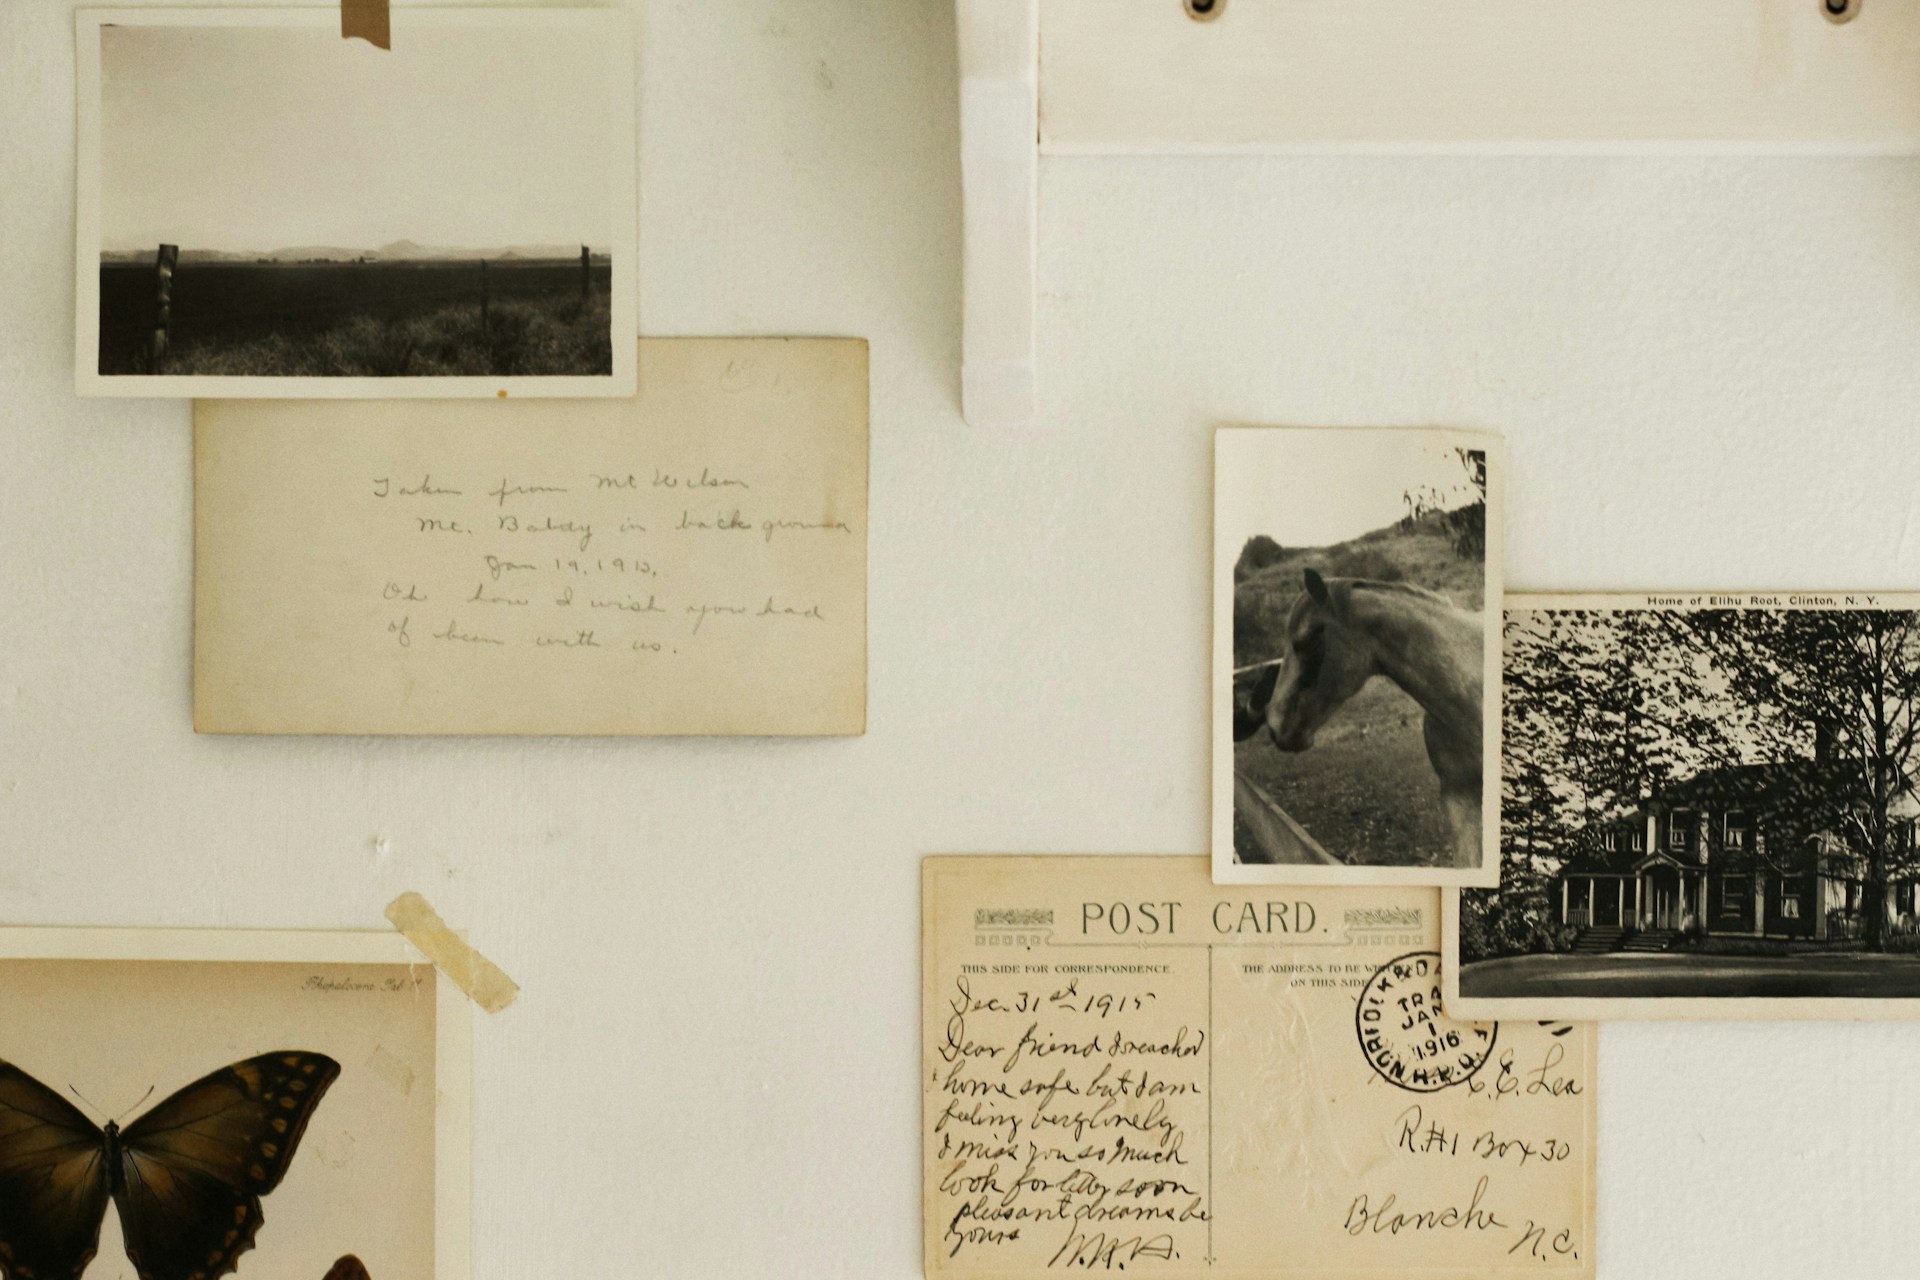 Taken from Mt Wilson
Mt. Baldy in back ground
Jan 19, 1913.
Oh how I wish you had
of been with us.
Home of Elihu Root, Clinton, N. Y.
POST CARD.
THIS SIDE FOR CORRESPONDENCE
THE ADDRESS TO BE
ON THIS SIDE
Dec. 31st 1915
Dear friend I reached
home safe but I am
feeling very lonely
I miss you so much
look for letter soon
pleasant dreams be
yours
TR
JAN
1
1916
R.P.O.
C.E. Lea
R.#1 Box 30
Blanche
N.C.